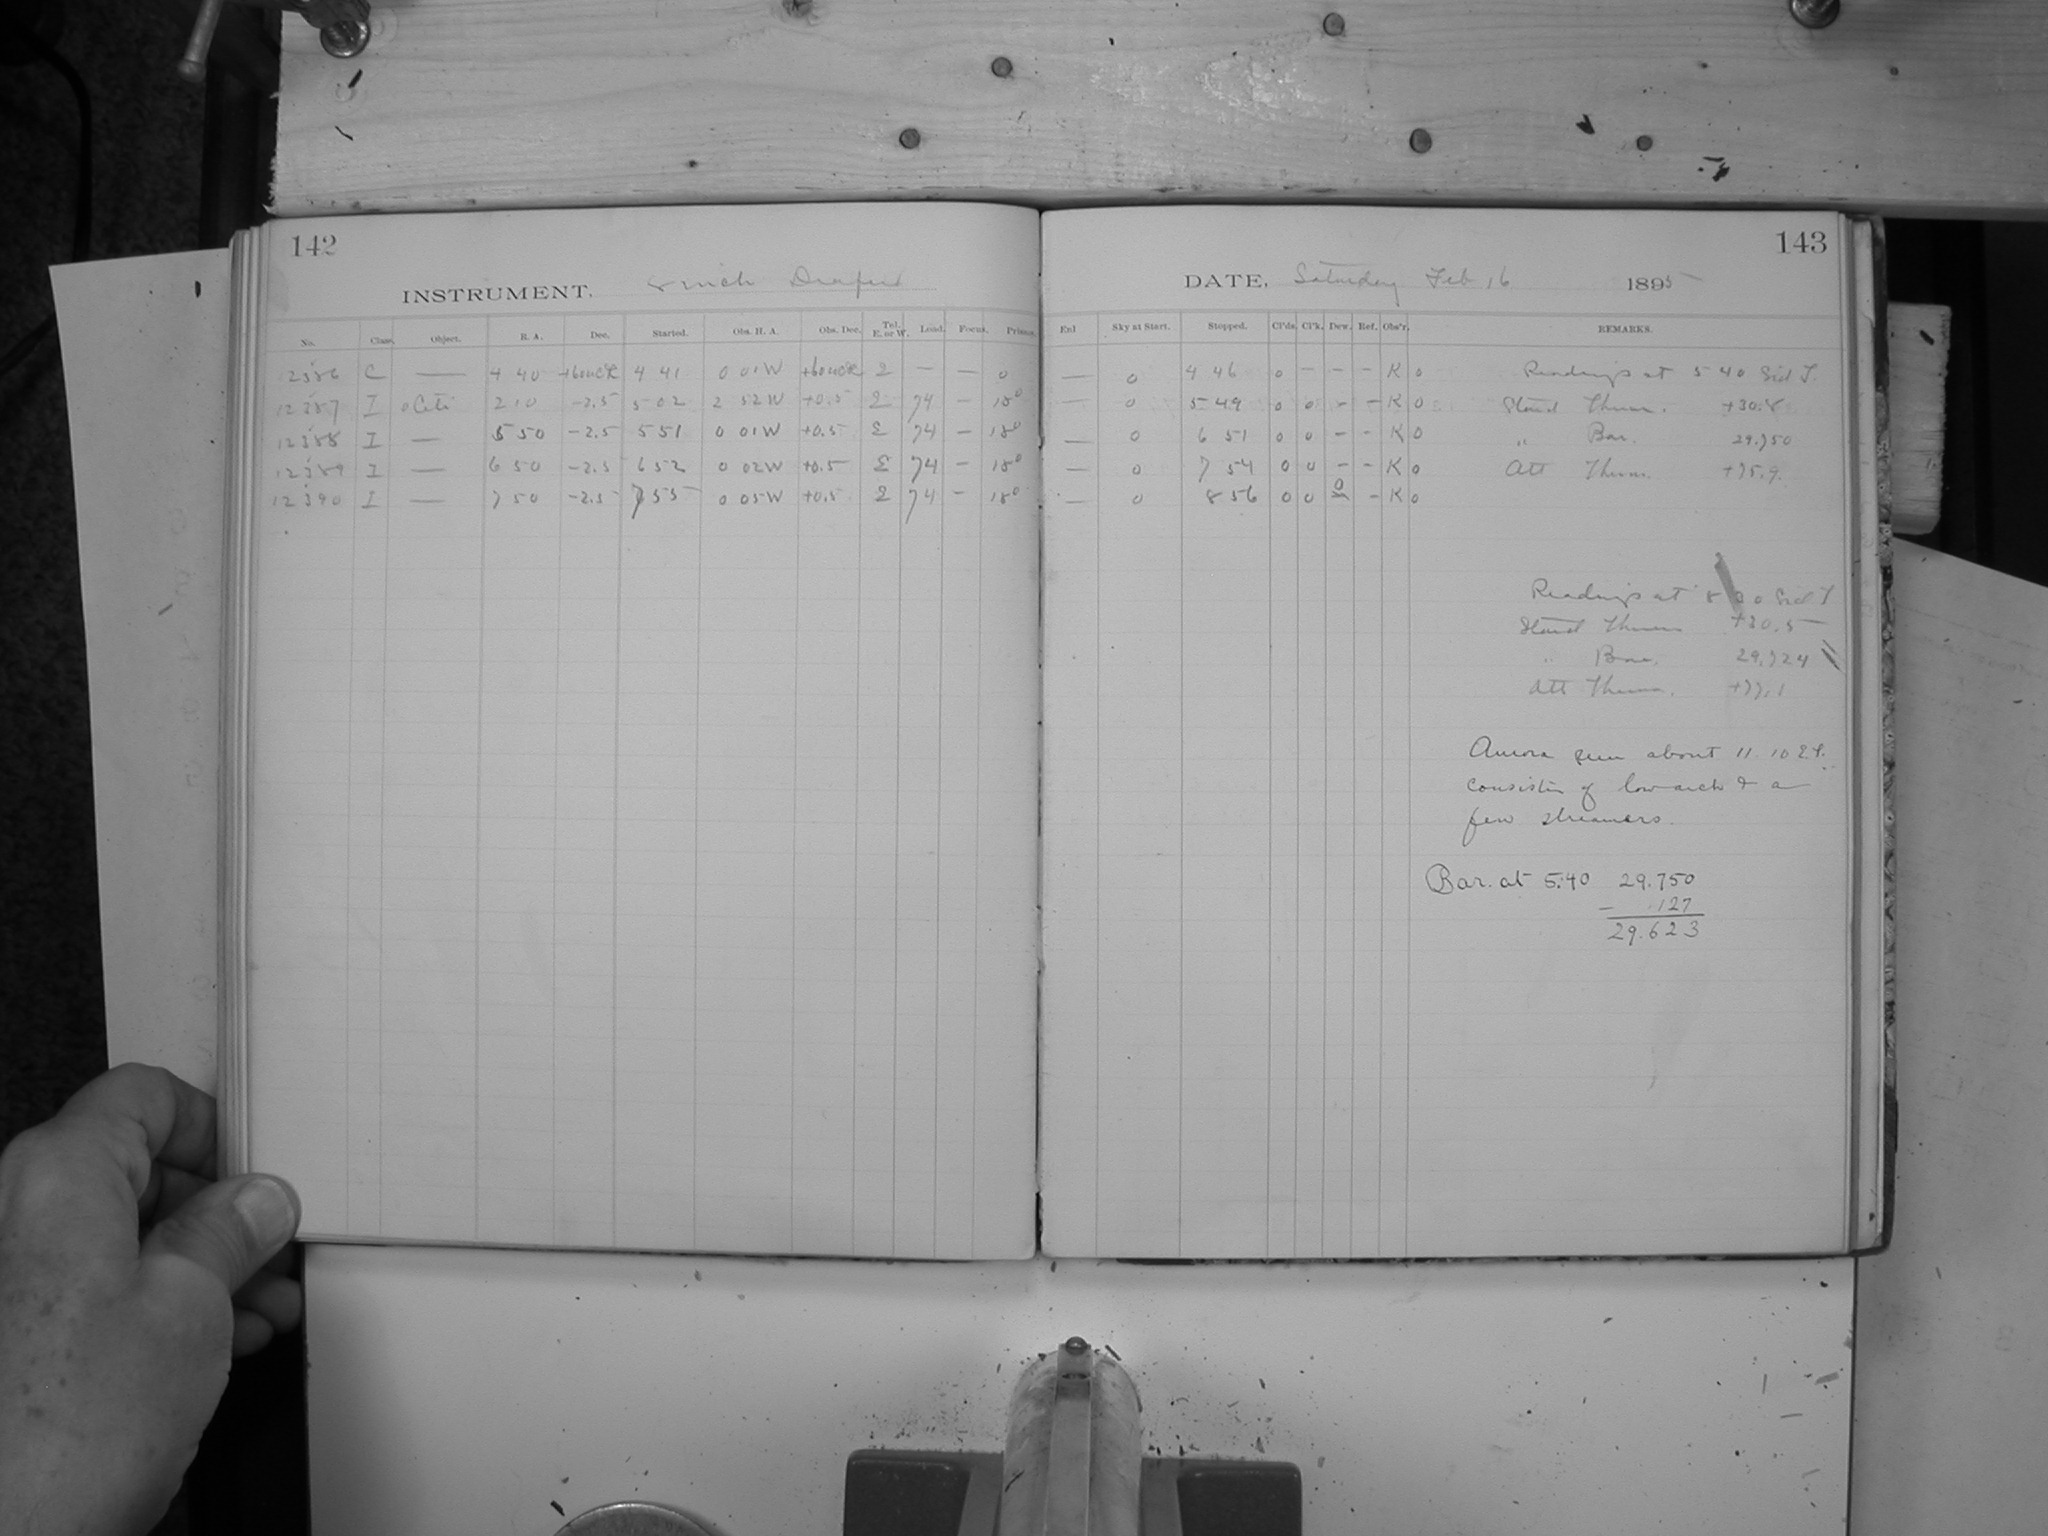 142
INSTRUMENT, 8 inch Draper
No. Class. Object. R. A. Dec. Started. Obs. H. A. Obs. Dec. Tel. E. or W. Load. Focus. Prisms.
12386 C — 4 40 4 41 0 01W — — 0
12387 I o Ceti 2 10 -2.5 5 02 2 52W +0.5 E 74 — 18°
12388 I — 5 50 -2.5 5 51 0 01W +0.5 E 74 — 18°
12389 I — 6 50 -2.5 6 52 0 02W +0.5 E 74 — 18°
12390 I — 7 50 -2.5 7 55 0 05W +0.5 E 74 — 18°
143
DATE, Saturday Feb 16 1895
Enl Sky at Start. Stopped. Cl'ds. Cl'k. Dew. Ref. Obs'r. REMARKS.
— 0 4 46 0 - - - K 0 Readings at 5 40 Sid T.
— 0 5 49 0 0 - - K 0 Stand Therm. +30.8
— 0 6 51 0 0 - - K 0 " Bar. 29.750
— 0 7 54 0 0 - - K 0 Att Therm. +75.9
— 0 8 56 0 0 0 - K 0
Readings at Sid T
Stand Therm +30.5
" Bar. 29.724
Att Therm. +77.1
Aurora seen about 11.10 E.T.
consisting of low arch & a
few streamers.
Bar. at 5:40 29.750
- .127
29.623